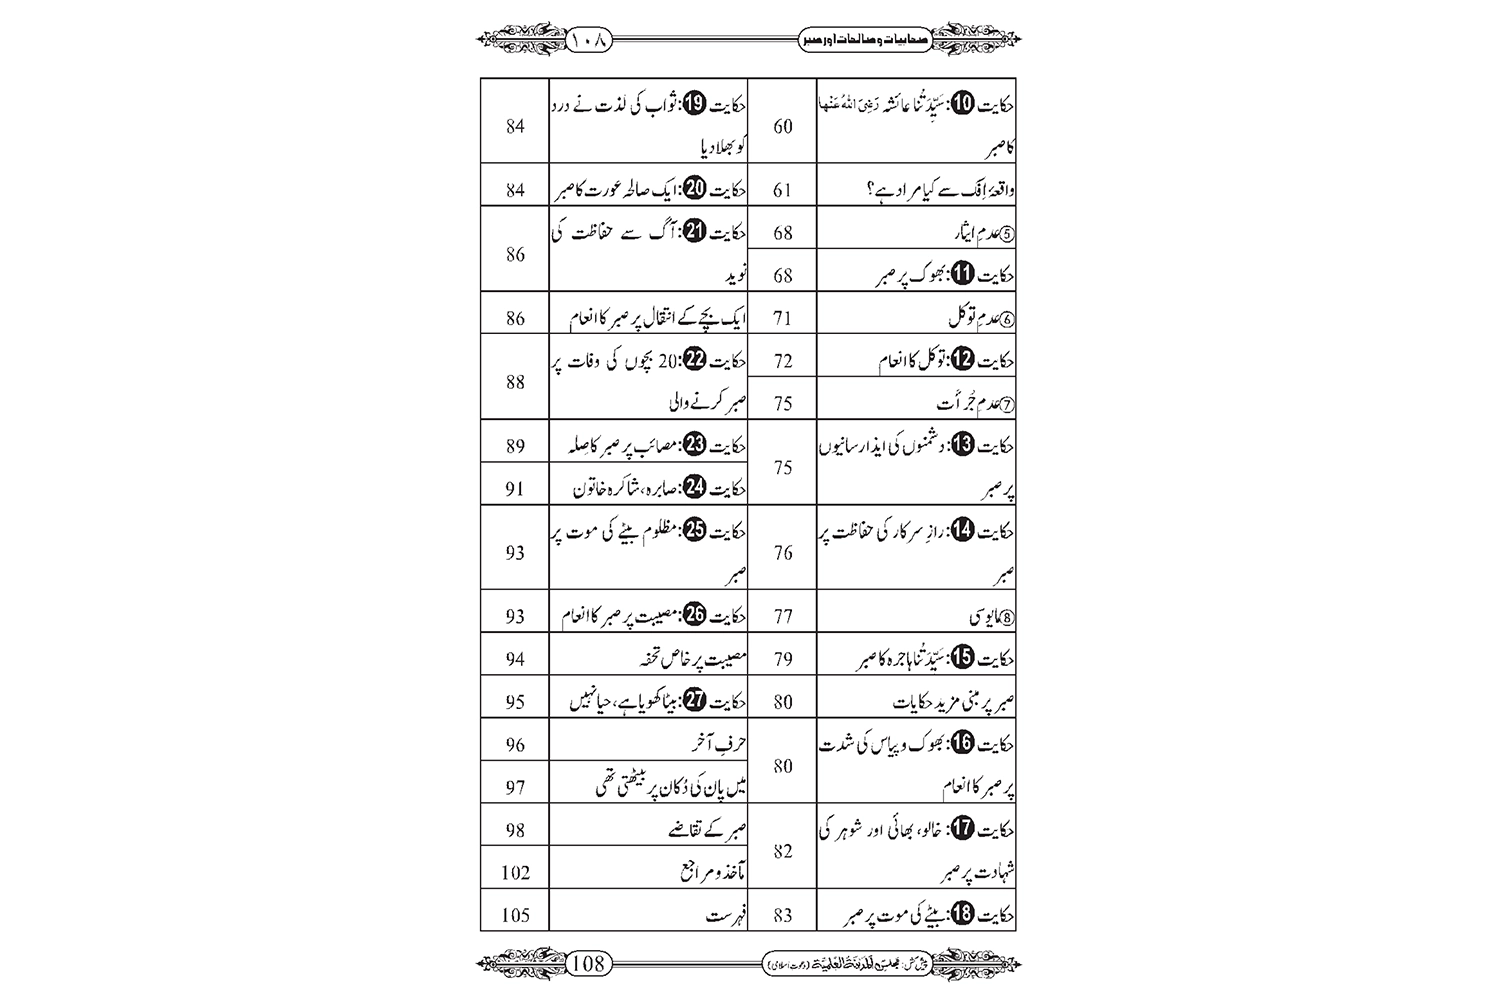 صحابیات و صالحات اور صبر
١٠٨
حکایت 10: سَیِّدَتُنا عائشہ رَضِیَ اللهُ عَنْها
کا صبر
60
واقعۂ اِفک سے کیا مراد ہے؟
61
⑤ عدمِ ایثار
68
حکایت 11: بھوک پر صبر
68
⑥ عدمِ توکل
71
حکایت 12: توکل کا انعام
72
⑦ عدمِ جُرأَت
75
حکایت 13: دشمنوں کی ایذا رسانیوں
پر صبر
75
حکایت 14: رازِ سرکار کی حفاظت پر
صبر
76
⑧ مایوسی
77
حکایت 15: سَیِّدَتُنا ہاجرہ کا صبر
79
صبر پر مبنی مزید حکایات
80
حکایت 16: بھوک و پیاس کی شدت
پر صبر کا انعام
80
حکایت 17: خالو، بھائی اور شوہر کی
شہادت پر صبر
82
حکایت 18: بیٹے کی موت پر صبر
83
حکایت 19: ثواب کی لذت نے درد
کو بھلا دیا
84
حکایت 20: ایک صالحہ عورت کا صبر
84
حکایت 21: آگ سے حفاظت کی
نوید
86
ایک بچے کے انتقال پر صبر کا انعام
86
حکایت 22: 20 بچوں کی وفات پر
صبر کرنے والی
88
حکایت 23: مصائب پر صبر کا صِلہ
89
حکایت 24: صابرہ، شاکرہ خاتون
91
حکایت 25: مظلوم بیٹے کی موت پر
صبر
93
حکایت 26: مصیبت پر صبر کا انعام
93
مصیبت پر خاص تحفہ
94
حکایت 27: بیٹا کھویا ہے، حیا نہیں
95
حرفِ آخر
96
میں پان کی دُکان پر بیٹھتی تھی
97
صبر کے تقاضے
98
مآخذ و مراجع
102
فہرست
105
پیش کش: مجلس المدینۃ العلمیۃ (دعوتِ اسلامی)
108